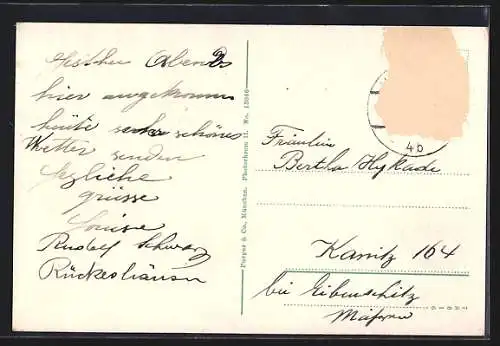 Gestern Abend
hier angekommen
heute sehr schönes
Wetter senden
herzliche
Grüsse
Louise
Rudolf Schwarz
Rückeshäuser
Purger & Co., München. Photochrom 11. No. 13046
4b
Fräulein
Bertha Hykade
Kanitz 164
bei Eibenschitz
Mähren